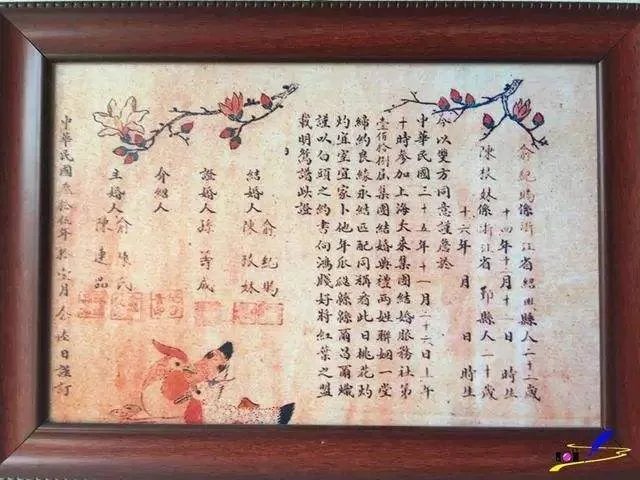 俞紀鳴係浙江省紹興縣人二十二歲
十四年十二月十二日 時生
陳玖妹係浙江省鄞縣人二十歲
十六年 月 日 時生
今以雙方同意謹詹於
中華民國三十五年十一月二十六日上午
十時參加上海大來集團結婚服務社第
壹佰拾捌屆集團結婚典禮兩姓聯姻一堂
締約良緣永結匹配同稱看此日桃花灼
灼宜室宜家卜他年瓜瓞緜緜爾昌爾熾
謹以白頭之約書向鴻牋好將紅葉之盟
載明鴛譜此證
結婚人 俞紀鳴
陳玖妹
證婚人 孫籌成
介紹人
主婚人 俞陳氏
陳連品
中華民國叁拾伍年拾壹月 日謹訂